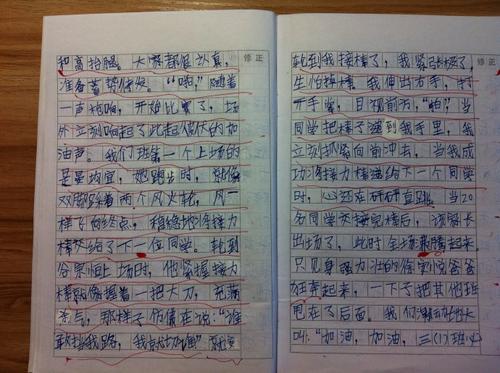 和高抬腿，大家都很认真，
修正
准备蓄势待发。“啪”随着
一声枪响，开始比赛了，场
外立刻响起了此起彼伏的加
油声。我们班第一个上场的
是晏均宜，她跑步时，就像
双脚踩着两个风火轮，风一
样飞向终点，稳稳地将接力
棒交给了下一位同学。轮到
上场时，他紧握接力
棒就像握着一把大刀，充满
杀气，那样子仿佛在说：“谁
敢挡我路，我就
轮到我接棒了，我紧张极了，
修正
生怕掉棒。我伸出右手，打
开手掌，目视前方，“啪”当
同学把棒子递到我手里，我
立刻抓紧向前冲去，当我成
功将接力棒递给下一个同学
时，心还在砰砰直跳。当20
名同学交接完棒后，该家长
出场了，此时全场沸腾起来。
只见身强力壮的徐 悦爸爸
狂奔起来，一下子把其他班
甩在了后面。我们 大
叫：“加油，加油，三（1）班必